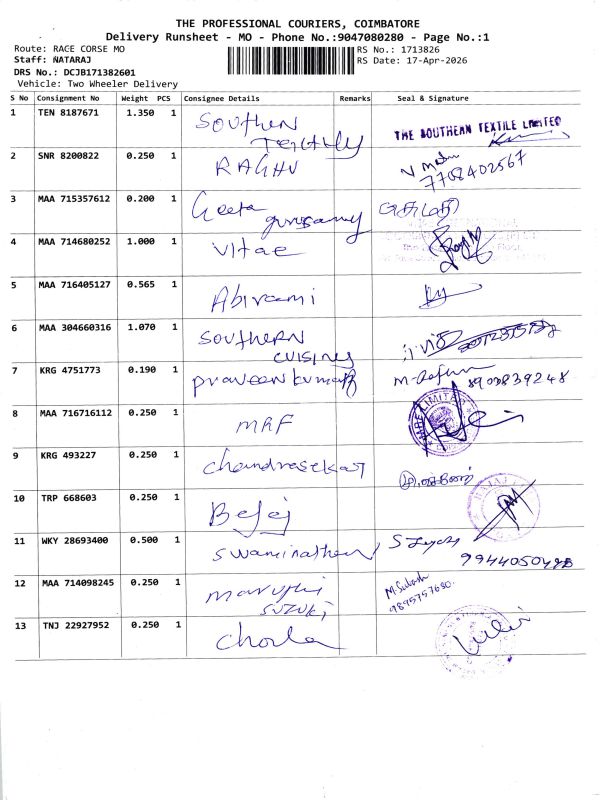 THE PROFESSIONAL COURIERS, COIMBATORE
Delivery Runsheet - MO - Phone No.:9047080280 - Page No.:1
Route: RACE CORSE MO RS No.: 1713826
Staff: NATARAJ RS Date: 17-Apr-2026
DRS No.: DCJB171382601
Vehicle: Two Wheeler Delivery
S No Consignment No Weight PCS Consignee Details Remarks Seal & Signature
1 TEN 8187671 1.350 1 Southern THE SOUTHERN TEXTILE LIMITED
2 SNR 8200822 0.250 1 RAGHU 7702402567
3 MAA 715357612 0.200 1 Geeta gurusamy
4 MAA 714680252 1.000 1 Vitae
5 MAA 716405127 0.565 1 Abirami
6 MAA 304660316 1.070 1 Southern
7 KRG 4751773 0.190 1 praveen kumar 8900839248
8 MAA 716716112 0.250 1 MRF
9 KRG 493227 0.250 1 chandrasekar
10 TRP 668603 0.250 1 Bajaj
11 WKY 28693400 0.500 1 Swaminathan
12 MAA 714098245 0.250 1 maruthi M. Subash
SUZUKI 9895757680.
13 TNJ 22927952 0.250 1 Chola